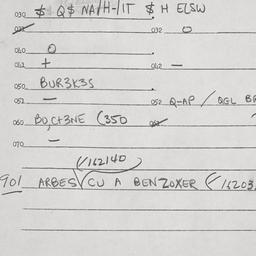 030 $ Q$ NA/H-/IT $ H ELSW
032 032 O
040 O
041 + 042 —
050 BUR3K3S
051 — 052 Q-AP / QGL
060 BO,CH3NE (350
—
070
(/162140)
901 ARBES CU A BENZOXER (/16203